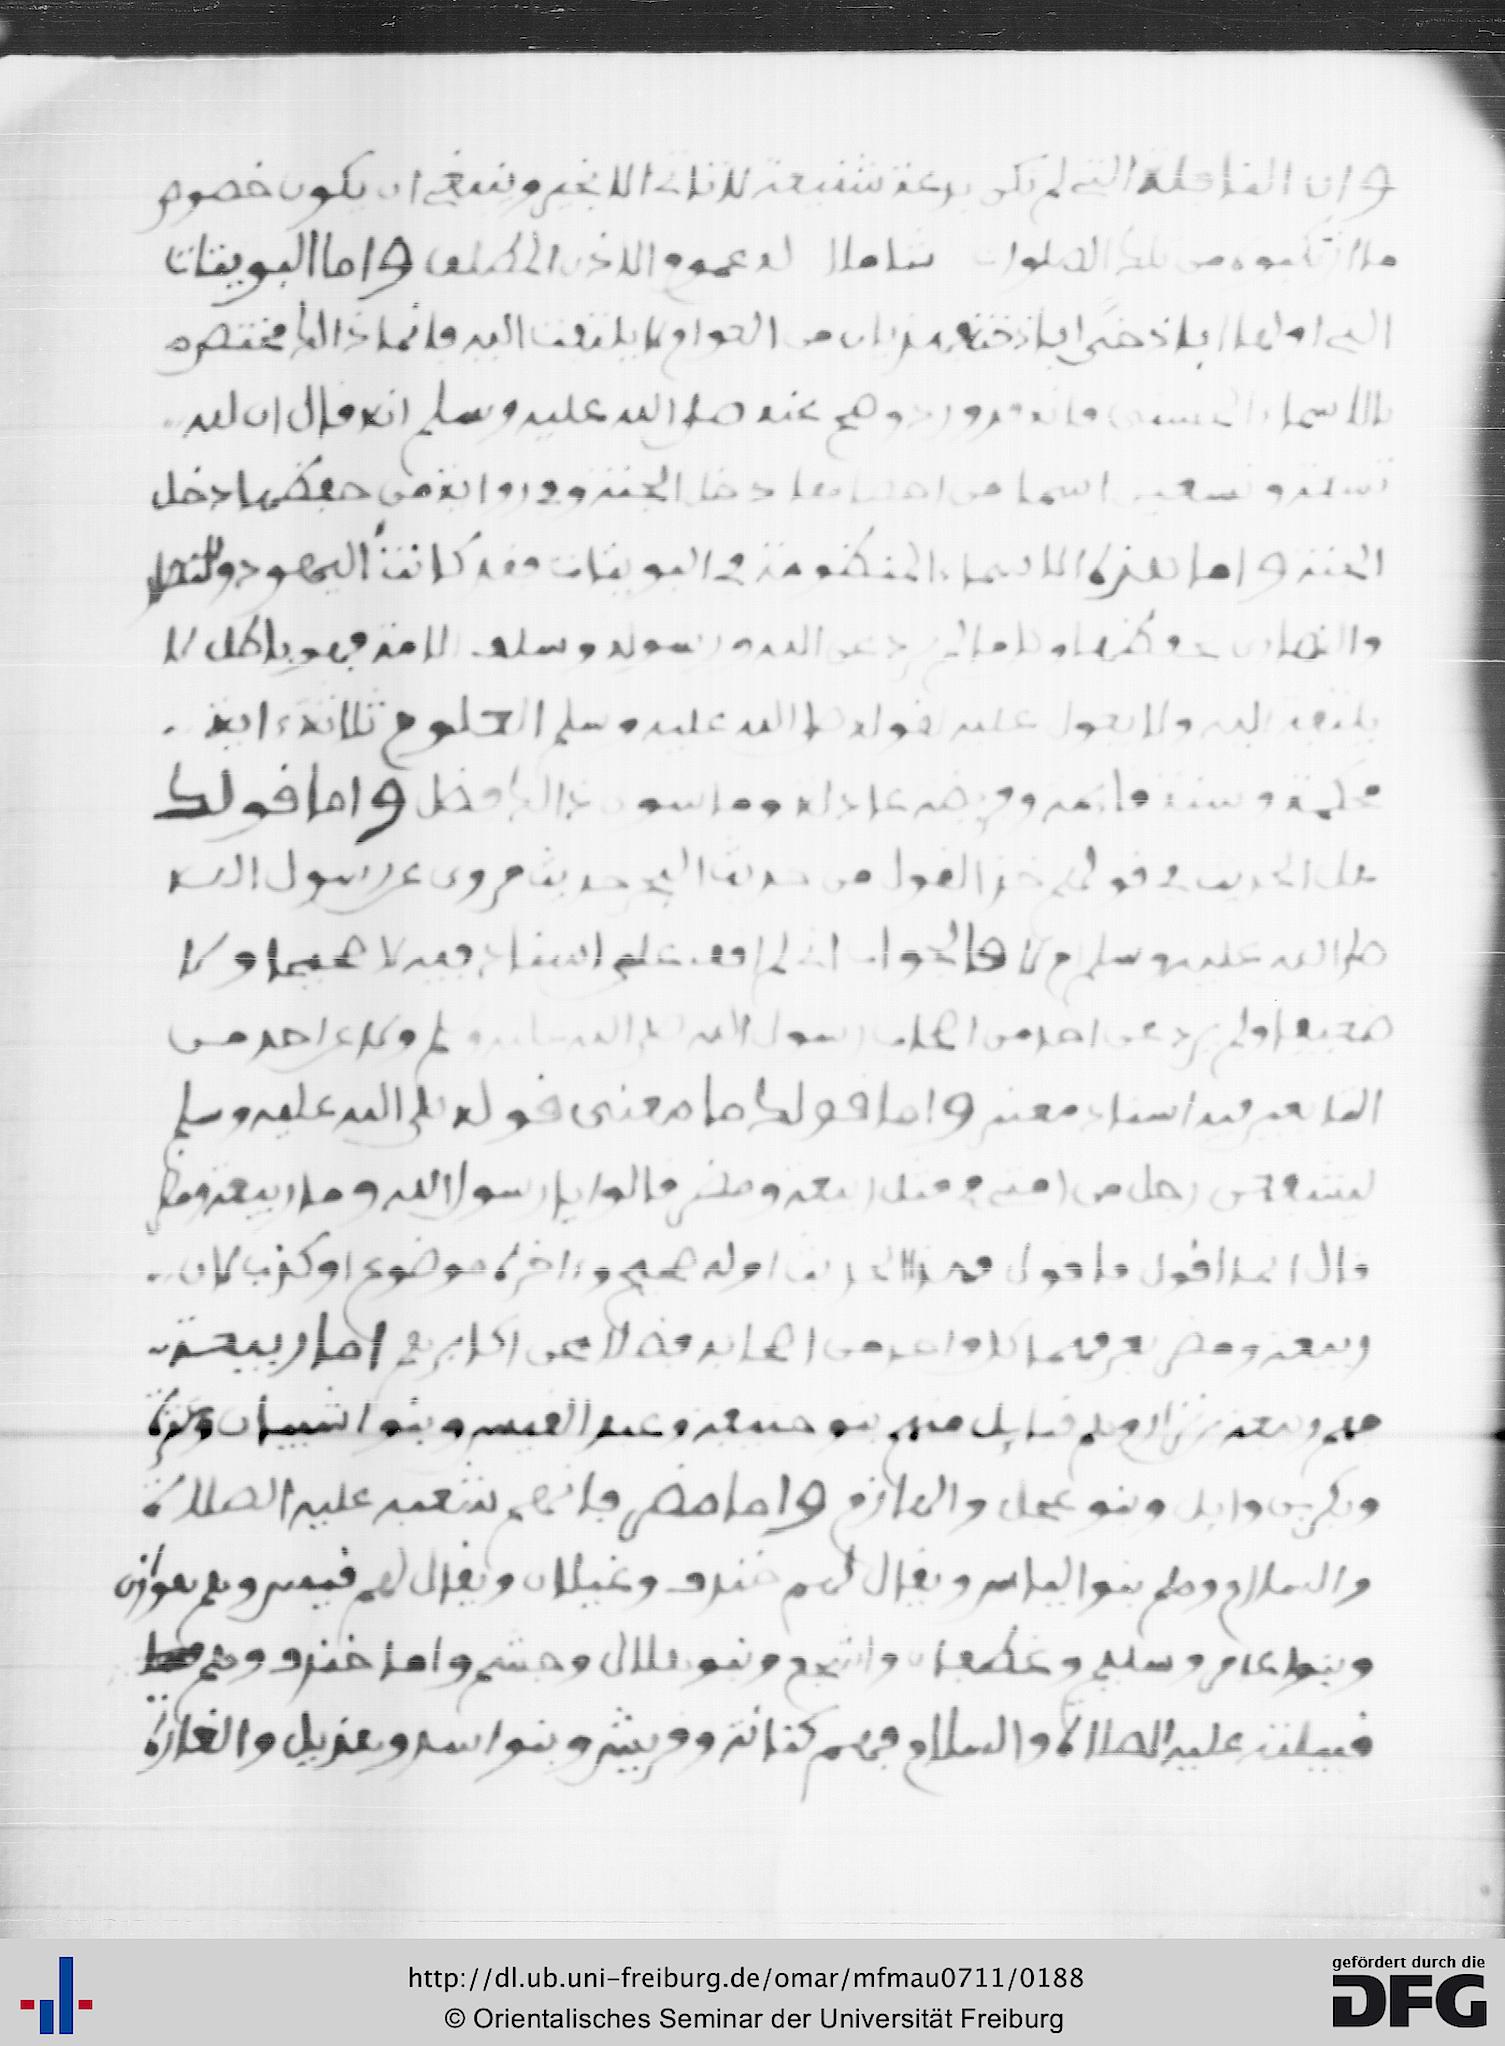 وان النافلة التي لم تكن بدعة شنيعة لا تاتي الا بخير وينبغي ان يكون خصوص
ما ارتكبوه من تلك الصلوات شاملا له عموم الاذن المطلق واما البويتات
التي اولها من العوام لا يلتفت اليه وانما ذالك مختصره
بالاسماء الحسنى فانه قد ورد وصح عنه صلى الله عليه وسلم انه قال ان لله
تسعة وتسعين اسما من احصاها دخل الجنة وفي رواية من حفظها دخل
الجنة واما هذه الاسماء المنظومة في البويتات فقد كانت اليهود
والنصارى تحفظها وكلما لم يرد عن الله ورسوله وسلف الامة فهو باطل لا
يلتفت اليه ولا يعول عليه لقوله صلى الله عليه وسلم العلوم ثلاثة ءاية
محكمة وسنة قائمة وفريضة عادلة وما سوى ذالك فضل واما قولك
هل الحديث في قولهم خذ الفول من حديث مروي عن رسول الله
صلى الله عليه وسلم ام لا فالجواب اني لم اقف على اسناد فيه لا صحيحا ولا
ضعيفا ولم يرد عن احد من اصحاب رسول الله صلى الله عليه وسلم ولا عن احد من
التابعين فيه اسناد معتبر واما قولك ما معنى قوله صلى الله عليه وسلم
ليشفعن رجل من امتي في مثل ربيعة ومضر قالوا يا رسول الله وما ربيعة ومضر
قال انما اقول ما اقول فهذا الحديث اوله صحيح وءاخره موضوع او كذب لان
ربيعة ومضر يعرفهما كل واحد من اصحابه فضلا عن اكابرهم اما ربيعة
فهم ربيعة بن نزار وهم قبايل منهم بنو حنيفة وعبد القيس وبنوا شيبان وعنزة
وبكر بن وايل وبنو عجل واللهازم واما مضر فانهم شعبه عليه الصلاة
والسلام وهم بنوا الياس ويقال لهم خندف وغيلان ويقال لهم قيس وهم هوازن
وبنوا عامر وسليم وغطفان واشجع وبنو هلال وجشم واما خندف وهم
قبيلته عليه الصلاة والسلام فهم كنانة وقريش وبنوا اسد وهذيل والقارة
http://dl.ub.uni-freiburg.de/omar/mfmau0711/0188
© Orientalisches Seminar der Universität Freiburg
gefördert durch die
DFG